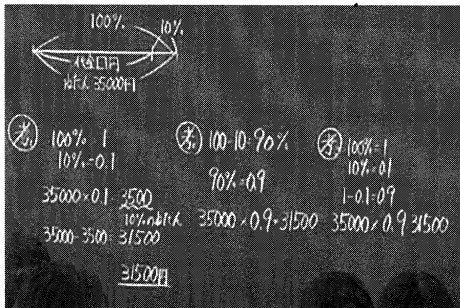 100%
10%
代金□円
ねだん35000円
考1
100%=1
10%=0.1
35000×0.1 3500
10%のねだん
35000-3500=31500
31500円
考2
100-10=90%
90%=0.9
35000×0.9=31500
考3
100%=1
10%=0.1
1-0.1=0.9
35000×0.9 31500